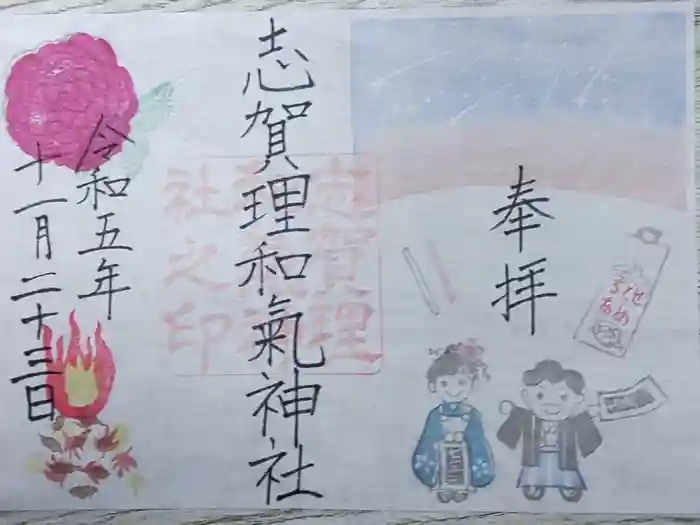 奉拝
志賀理和氣神社
令和五年
十一月二十三日
志賀理
和氣神
社之印
ちとせ
あめ